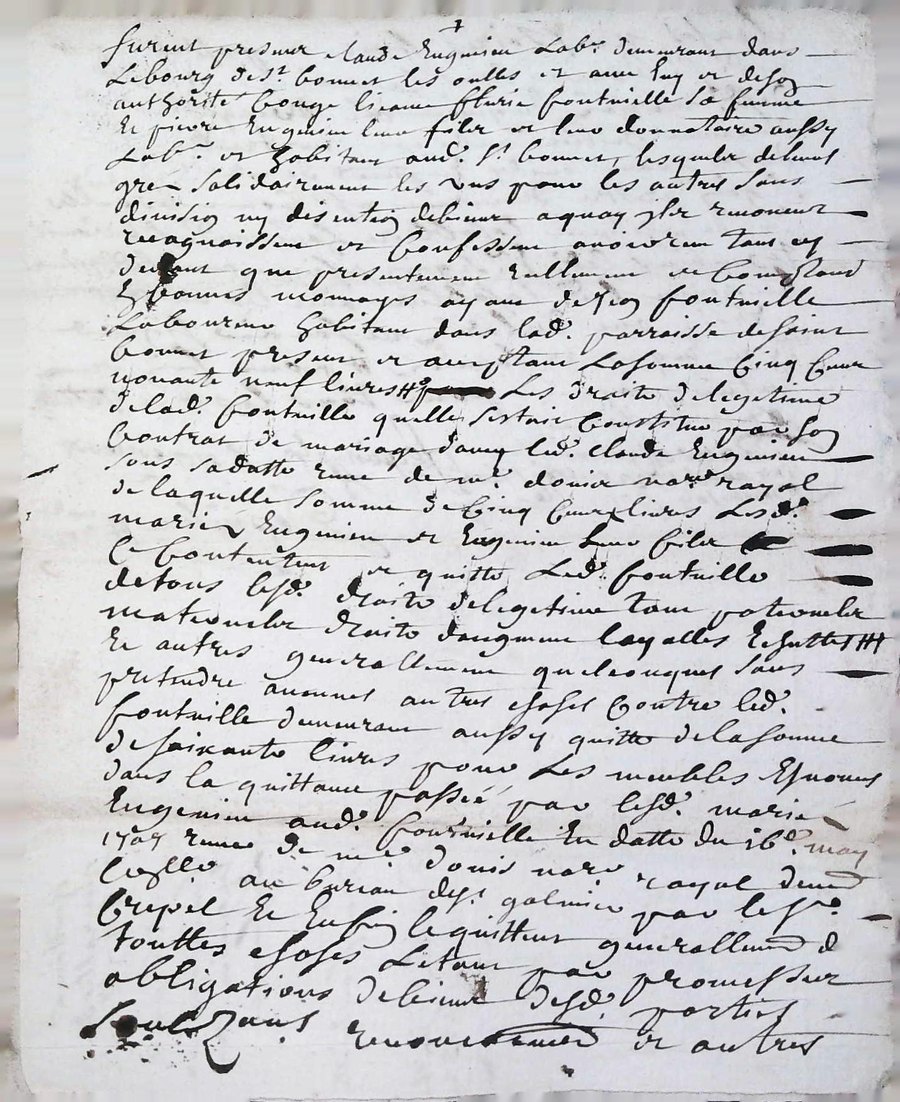 1
furent presens claude Eugenien Labr. demeurant dans
Le bourg de st. bonnet les oulles et avec luy et de son
authorité Conge licance fleurie fontvielle sa femme
Et pierre Eugenien leur fils et leur donnataire aussy
Labr. et habitant aud. st. bonnet, lesquels de leurs
gré solidairement les uns pour les autres sans
division ny discution de biens a quoy ils renoncent
recognoissent et Confessent avoir receu tout cy
devant que presentement reellement et Comptant
bonnes monnoyes ayant de fontvielle
Laboureur habitant dans lad. parroisse de saint
bonnet present et acceptant La somme Cinq Cent
nonante neuf livres Les droits de legitime
de lad. fontvielle quelle sestoit Constitue par son
Contrat de mariage davec led. Claude Eugenien
sous sa datte receu de me. donis nore. royal
de laquelle somme de Cinq Cent livres Lesd.
mariés Eugenien et Eugenien leur fils
se Contentent et quitte Led. fontvielle
de tous lesd. droits de legitime tant paternels
maternels droits daugment layalles Echuttes
Et autres generallement quelconques sans
pretendre aucunes autres choses Contre led.
fontvielle demeurant aussy quitte de la somme
de soixante livres pour Les meubles Enoncés
dans la quittance passée par lesd. mariés
Eugenien aud. fontvielle En datte du 16e. may
1707 receue de me. donis nore. royal
Collé au bureau de st. galmier par le sr.
Crepel Et Enfin le quittent generallement de
touttes choses Le tout par promesses
obligations de biens desd. parties
renoncement et autres